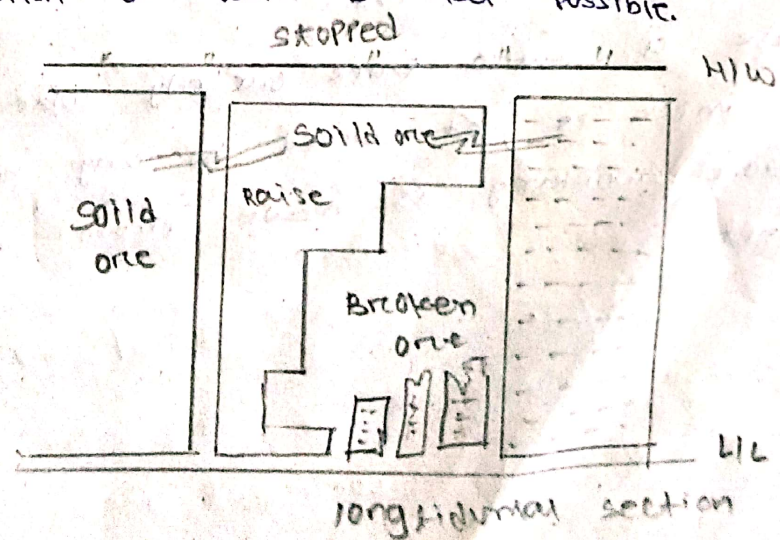 possible.
stopped
H/W
Soild ore
Raise
Soild
ore
Broken
ore
L/L
longtidunial section